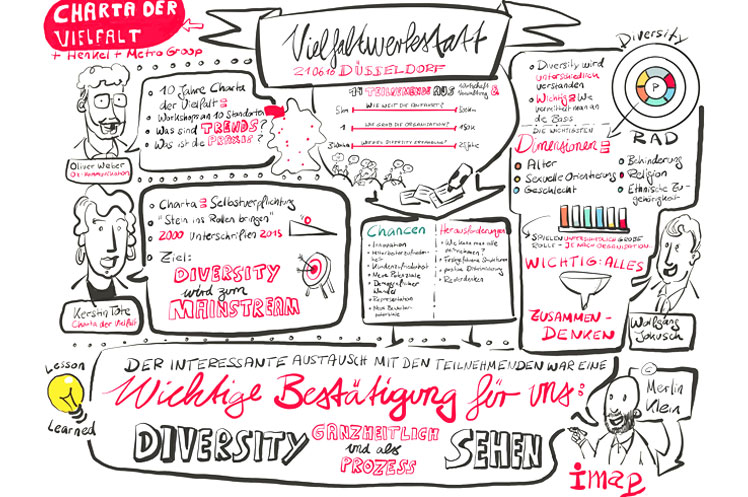 CHARTA DER
VIELFALT
+ Henkel + Metro Group
Vielfaltwerkstatt
21.06.16 DÜSSELDORF
10 Jahre Charta
der Vielfalt =
Workshops an 10 Standorten
Was sind TRENDS?
Was ist die PRAXIS?
Oliver Weber
TEILNEHMENDE AUS Wirtschaft
WIE WEIT DIE ANFAHRT?
5km
500km
WIE GROSS DIE ORGANISATION?
1
WIEVIEL DIVERSITY ERFAHRUNG?
Diversity
RAD
P
Diversity wird
unterschiedlich
verstanden
Wichtig: Wie
vermittelt man an
die Basis
DIE WICHTIGSTEN
Dimensionen =
Alter
Sexuelle Orientierung
Geschlecht
Behinderung
Religion
Ethnische Zu-
gehörigkeit
SPIELEN UNTERSCHIEDLICH GROßE
ROLLE - JE NACH ORGANISATION.
WICHTIG: ALLES
ZUSAMMEN-
DENKEN
Wolfgang
Jokusch
Charta = Selbstverpflichtung
"Stein ins Rollen bringen"
2000 Unterschriften 2015
Ziel:
DIVERSITY
wird zum
MAINSTREAM
Kerstin Tote
Charta der Vielfalt
Chancen
Innovation
Mitarbeiterzufrieden-
heit
Kundenzufriedenheit
Neue Potenziale
Demografischer
Wandel
Repräsentation
Neue Bewerber-
potenziale
Herausforderungen
Wie kann man alle
mitnehmen?
Festgefahrene Strukturen
positive Diskriminierung
Querdenken
Lesson
Learned
DER INTERESSANTE AUSTAUSCH MIT DEN TEILNEHMENDEN WAR EINE
Wichtige Bestätigung für uns:
DIVERSITY GANZHEITLICH
und als
PROZESS SEHEN
©
Merlin
Klein
imap